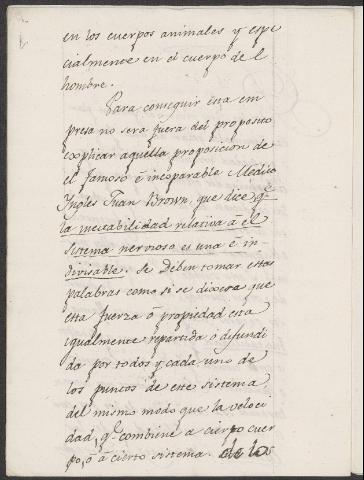 en los cuerpos animales y espe
cialmente en el cuerpo del
hombre.
Para conseguir esta em
presa no sera fuera del proposito
explicar aquella proposicion de
el famoso é incoparable Medico
Ingles Juan Brown, que dice q.e
la incitabilidad relativa á el
sistema nervioso es una é in-
divisable. Se deben tomar estas
palabras como si se dixera que
esta fuerza ó propiedad esta
igualmente repartida ó defundi
da por todos y cada uno de
los puntos de este sistema
del mismo modo que la veloci
dad, q.e combiene a cierto cuer
po, ó á cierto sistema. de los